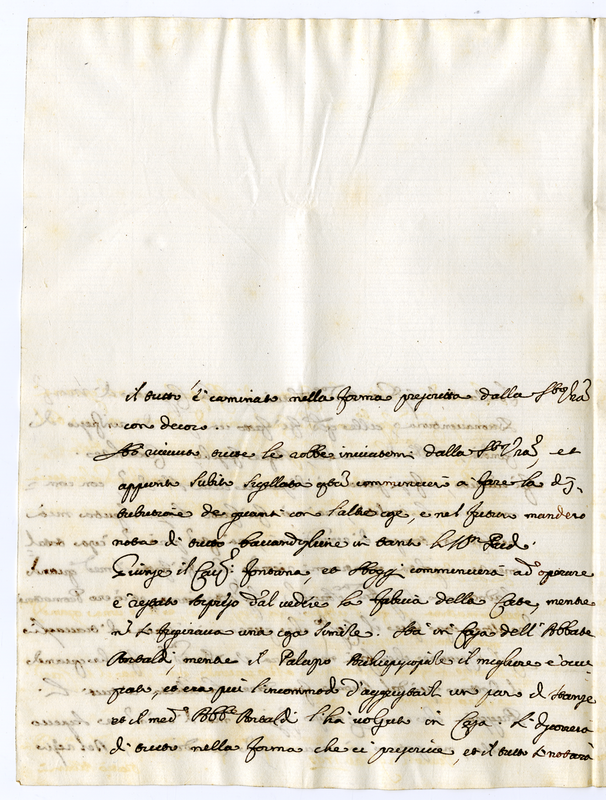 il tutto è caminato nella forma prescritta dalla S.ria V.ra
con decoro.
Ho riceuuto tutte le robbe inuiatemi dalla S.ria V.ra, et
appunto subito sigillata q.ta comminciero a fare la dis-
tributione de guanti con l'altre cose, e nel futuro manderò
nota di tutto
Giunse il Cau.r Fontana, et hoggi comminciera ad operare
è restato sorpreso dal uedere la fabrica della mentre
n. s'aspettaua una cosa simile. Sta in Casa dell'Abbate
Ansaldi, mentre il Palazzo Archiepiscopale il migliore è occu
pato, et era più l'incommodo d'aggiustarli un par di stanze
et il med.o Abb.e Ansaldi l'ha uoluto in Casa.
di tutto nella forma che ci prescriue, et il tutto notarà